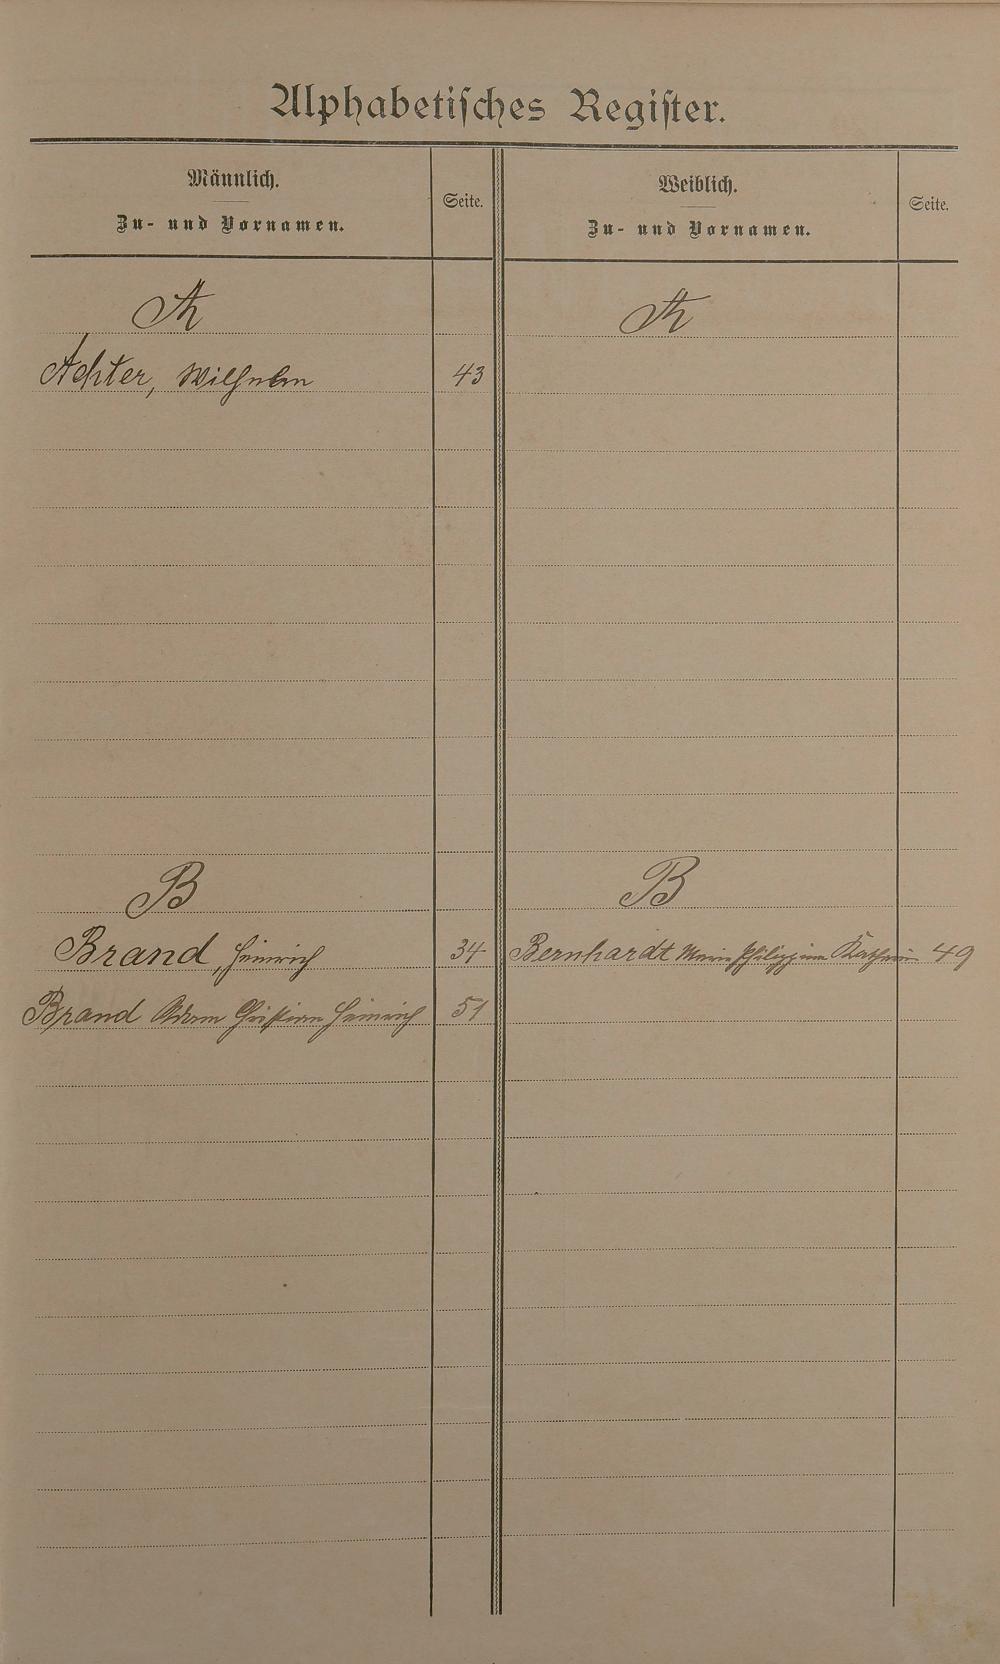 Alphabetisches Register.
Männlich.
Zu- und Vornamen.
Seite.
Weiblich.
Zu- und Vornamen.
Seite.
A
A
Achter, Wilhelm 43
B
B
Brand, Heinrich 34
Bernhardt Marie Philippine Kathrin 49
Brand Adam Christian Heinrich 51